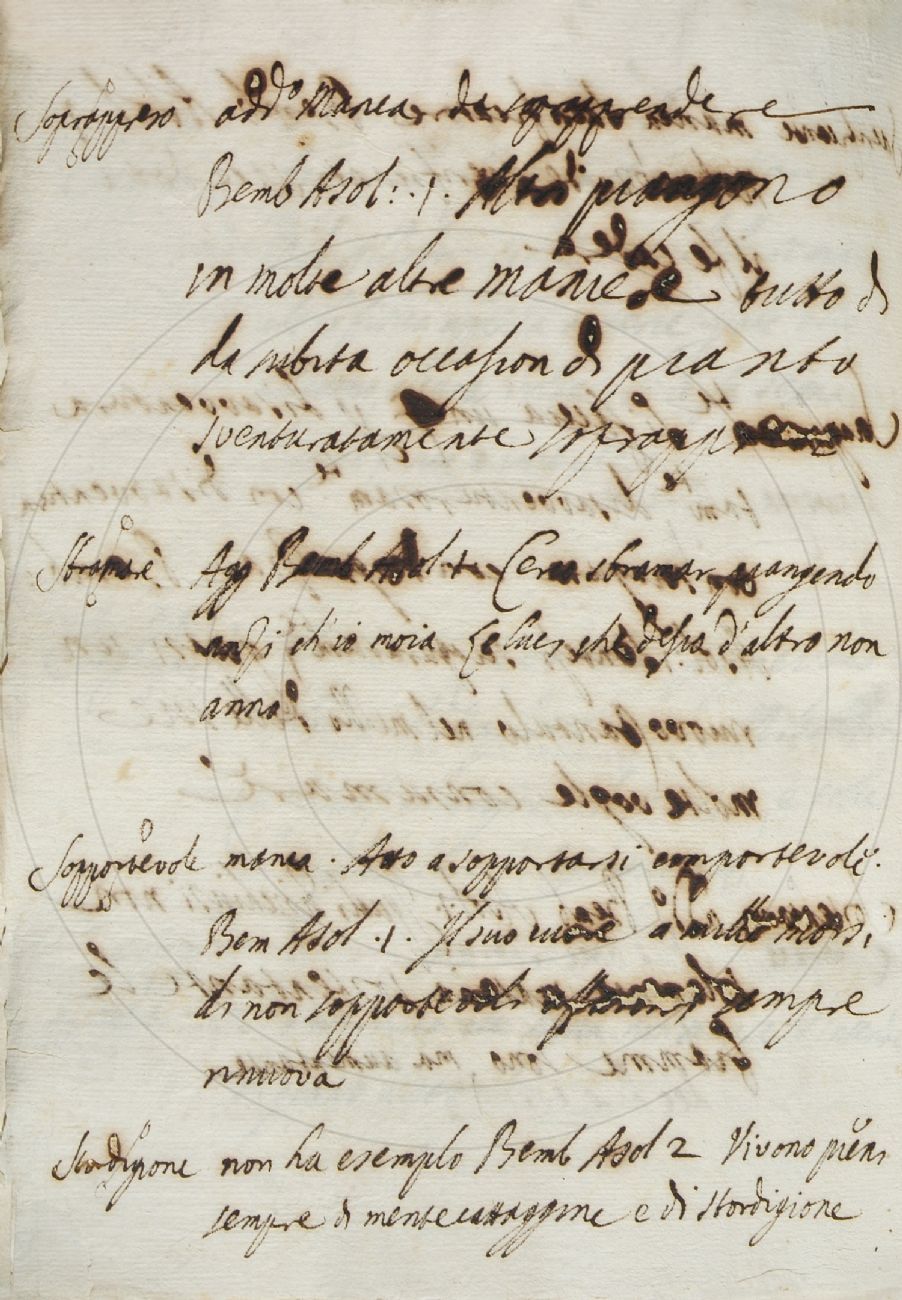 Soprappreso add.º Manca, da soprapprendere
Bemb Asol: . 1 . Altri piangono
in molte altre maniere tutto dì
da subita occasion di pianto
sventuratamente soprapp
Sbramare Agg Bemb Asol 1 Cerco sbramar piangendo
anzi ch'io moia Le luci che desia d'altro non
anno
Sopportevole manca . Atto a sopportarsi comportevole.
Bem Asol . 1 . Il suo cuore a mille morsi
di non sopportevoli sempre
rinnuova
Stordigione non ha esemplo Bemb Asol 2 Vivono pieni
sempre di mentecattaggine e di stordigione